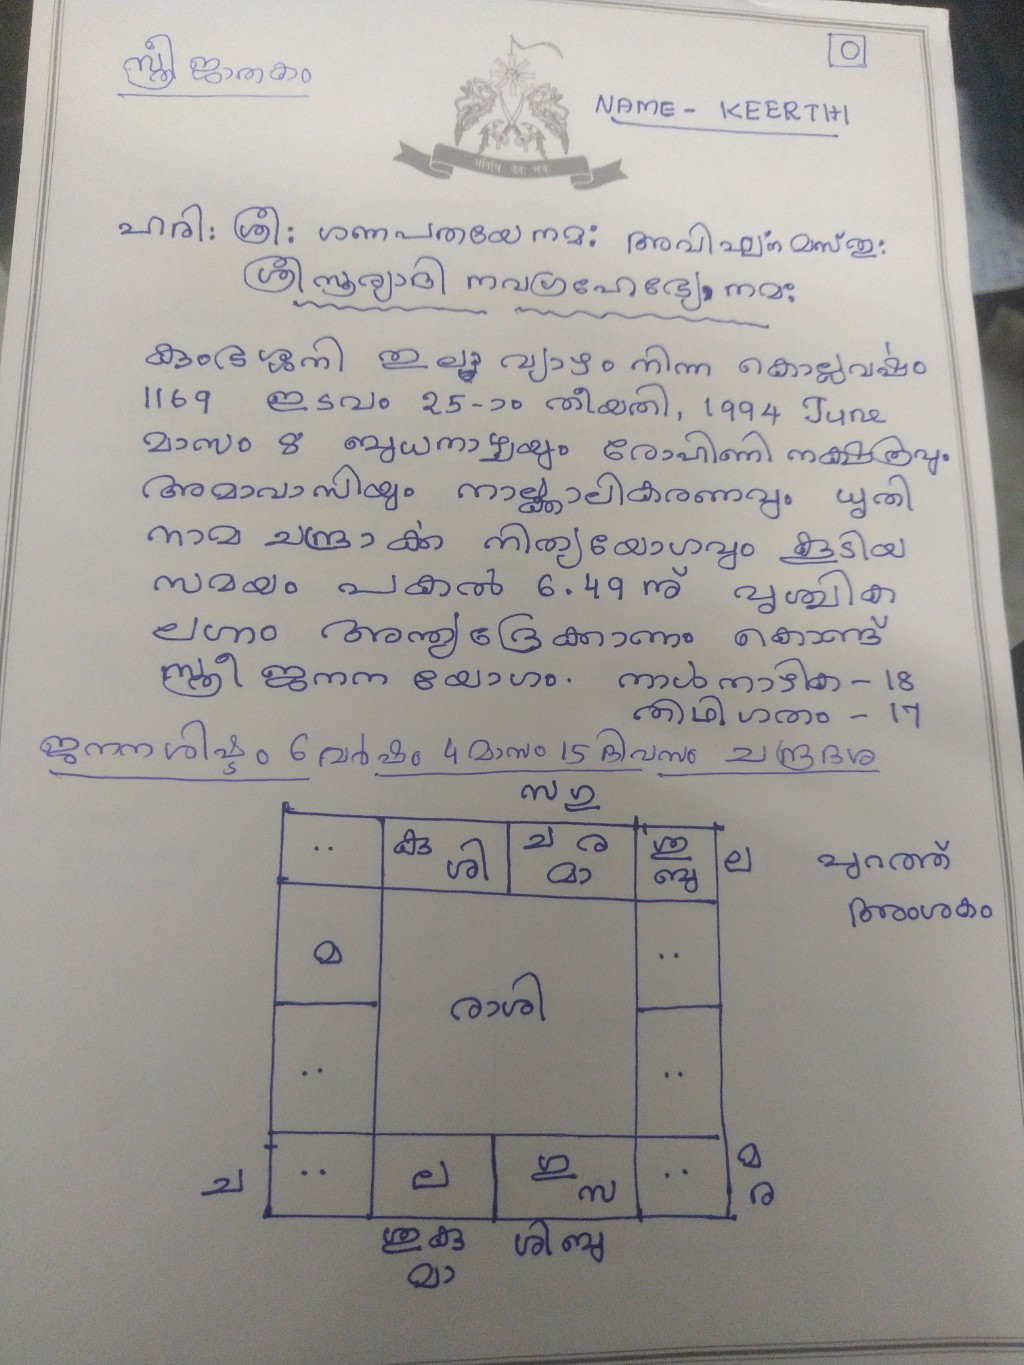 സ്ത്രീ ജാതകം
0
NAME - KEERTHI
ഹരി: ശ്രീ: ഗണപതയേ നമ: അവിഘ്നമസ്തു:
ശ്രീ സൂര്യാദി നവഗ്രഹേഭ്യോ നമ:
കുംഭ ശനി തുലാ വ്യാഴം നിന്ന കൊല്ലവർഷം
1169 ഇടവം 25-ാം തീയതി, 1994 June
മാസം 8 ബുധനാഴ്ചയും രോഹിണി നക്ഷത്രവും
അമാവാസിയും നാല്ക്കാലികരണവും ധൃതി
നാമ ചന്ദ്രാർക്ക നിത്യയോഗവും കൂടിയ
സമയം പകൽ 6.49 ന് വൃശ്ചിക
ലഗ്നം അന്ത്യദ്രേക്കാണം കൊണ്ട്
സ്ത്രീ ജനന യോഗം. നാൾ നാഴിക - 18
തിഥി ഗതം - 17
ജനനശിഷ്ടം 6 വർഷം 4 മാസം 15 ദിവസം ചന്ദ്രദശ
സ ഗു
കു ശി
ച ര
മാ
ശു
ബു
ല
പുറത്ത്
അംശകം
മ
രാശി
ച
ല
ഗു
സ
മ
ര
ശു കു
മാ
ശി ബു